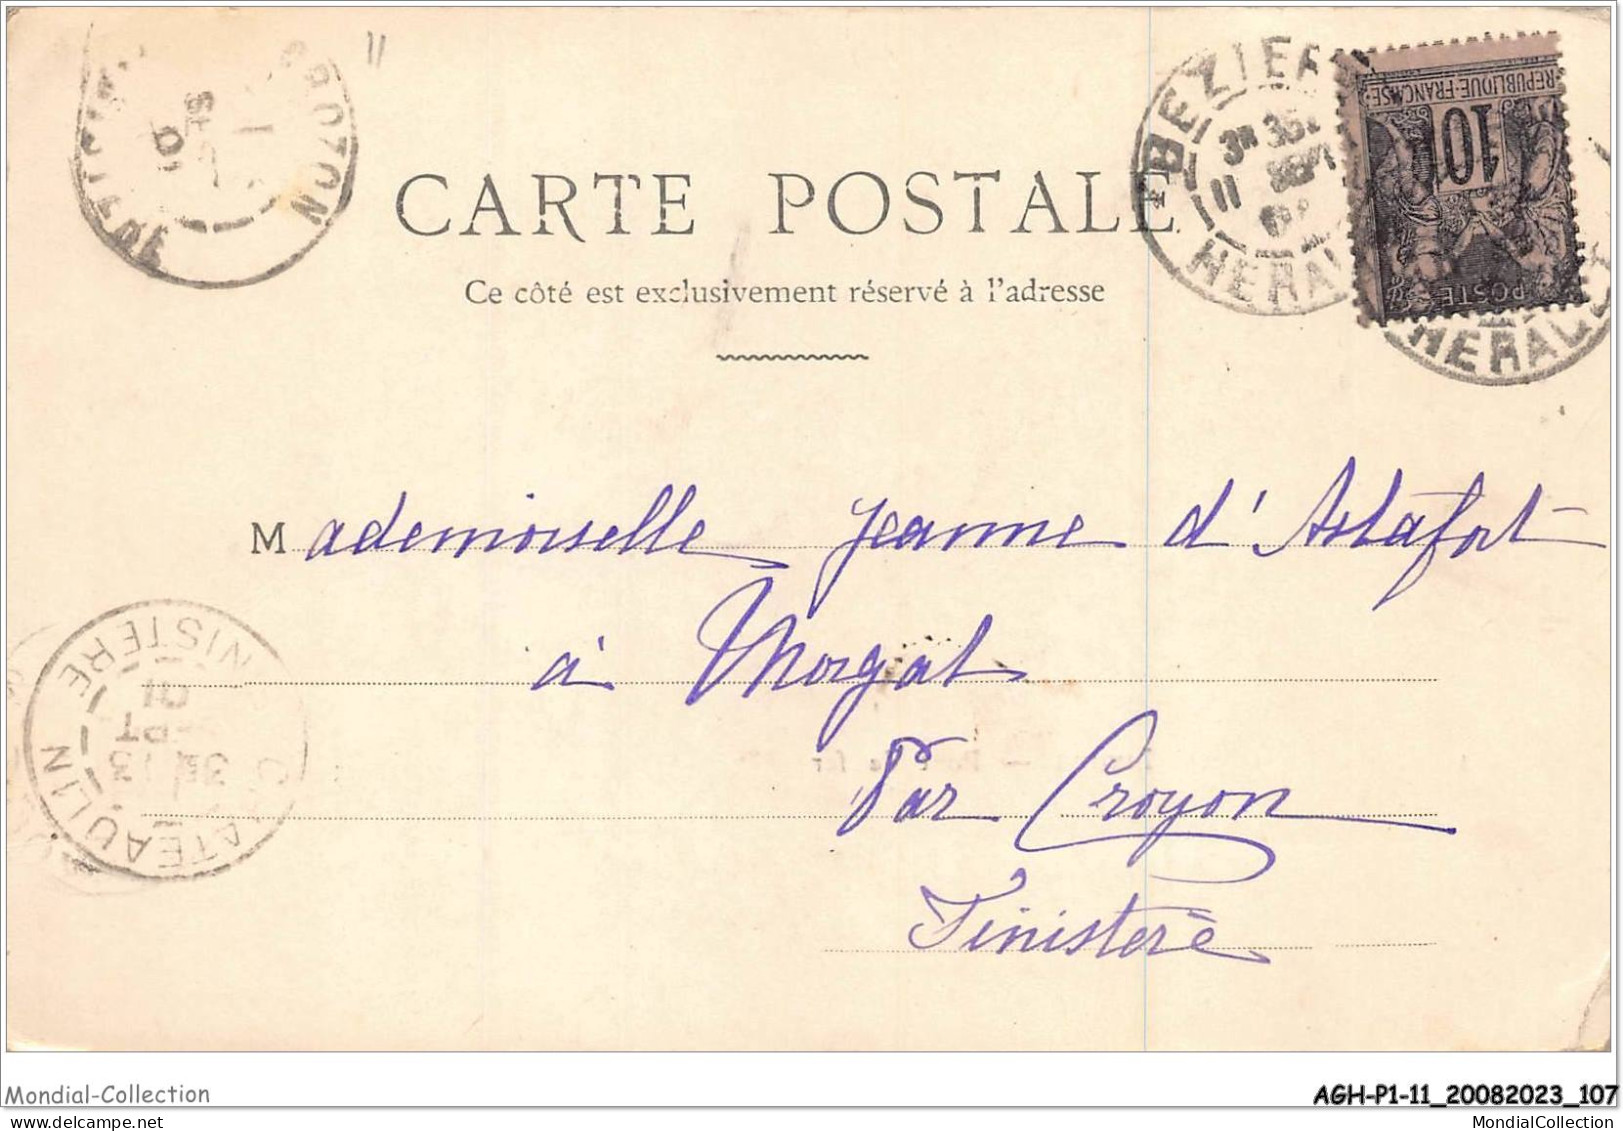 CARTE POSTALE
Ce côté est exclusivement réservé à l'adresse
BEZIER
3E 35
11 SEPT
HERAULT
REPUBLIQUE FRANÇAISE
10
POSTES
HERAULT
CROZON
01
Mademoiselle Jeanne d'Astafort
à Morgat
Par Crozon
Finistère
CHATEAULIN
FINISTERE
3E 13
SEPT
01
Mondial-Collection
AGH-P1-11_20082023_107
MondialCollection